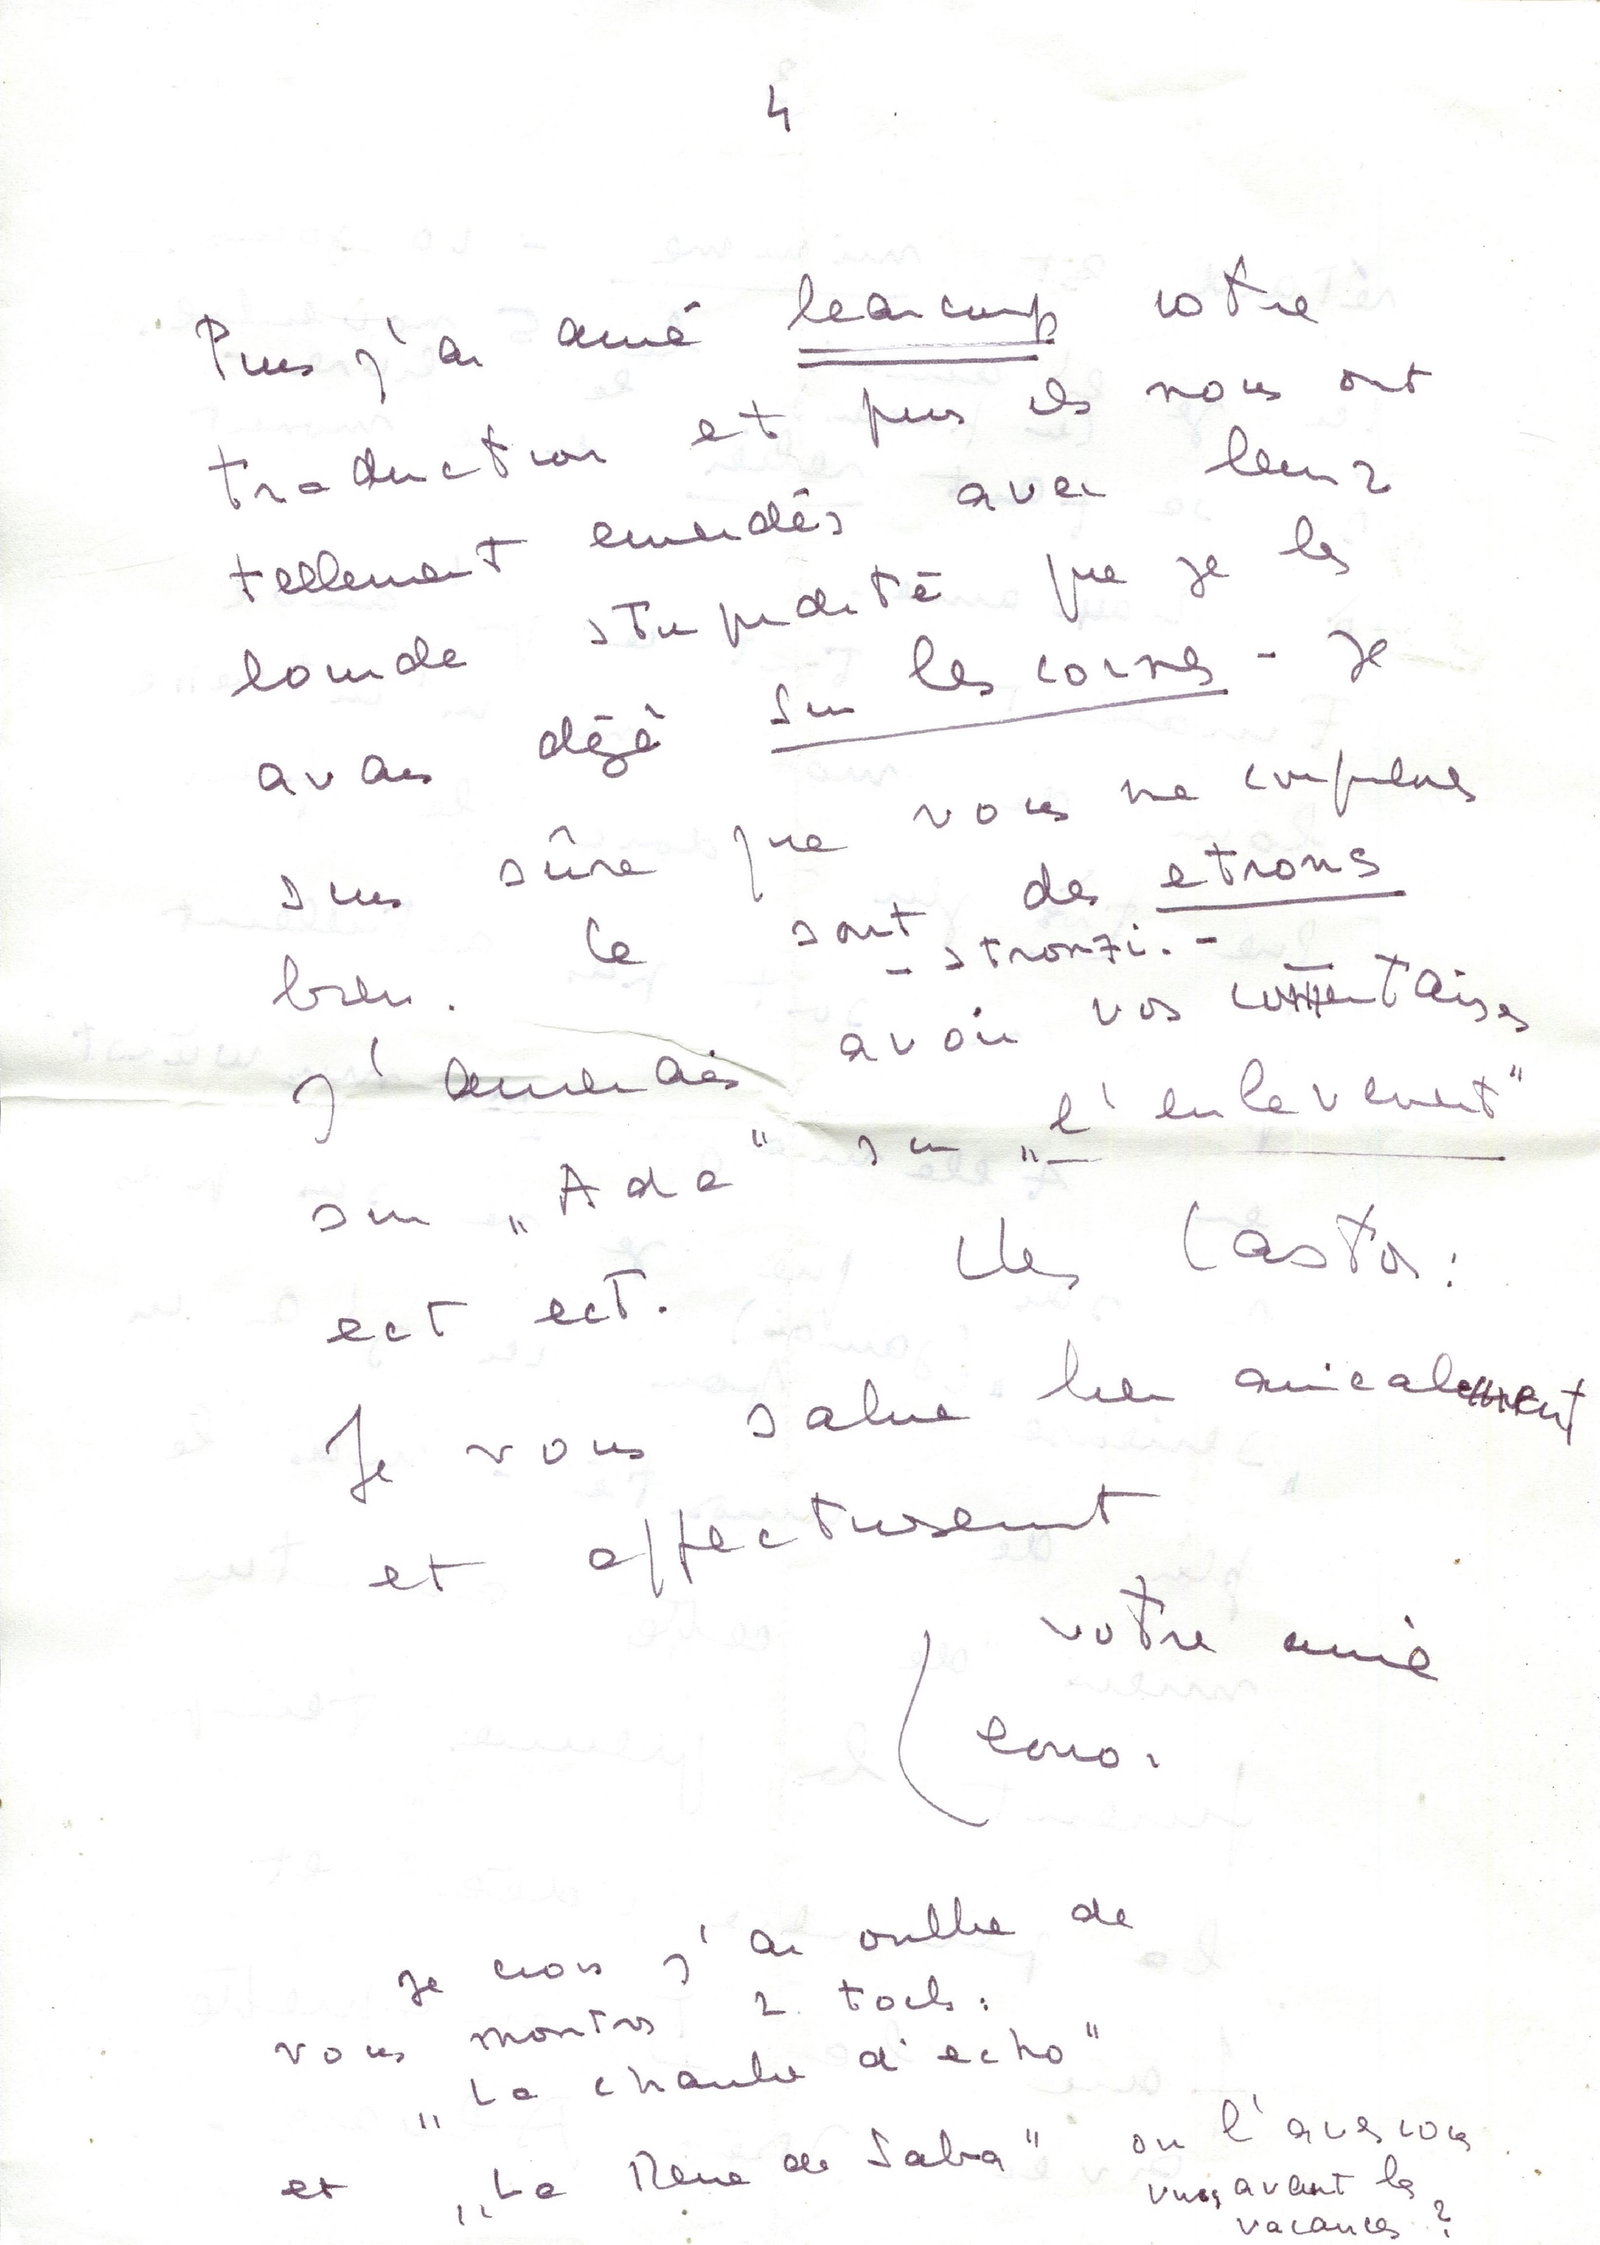 4
Puis j'ai aimé beaucoup votre
traduction et puis ils nous ont
tellement emerdés avec leur
lourde stupidité que je les
avais déjà sur les cornes - Je
suis sûre que vous me comprenes
bien. Ce sont des etrons
- stronzi. -
J'aimerais avoir vos commentaires
sur „Ada" sur „l'enlevement"
ect ect. les Castor:
Je vous salue bien amicalement
et affectusement
votre amie
Je crois j'ai oublie de
vous montrer 2 tocls:
„La chambre d'echo"
et „La Reine de Saba" ou l'aves vous
vues avant les
vacances ?